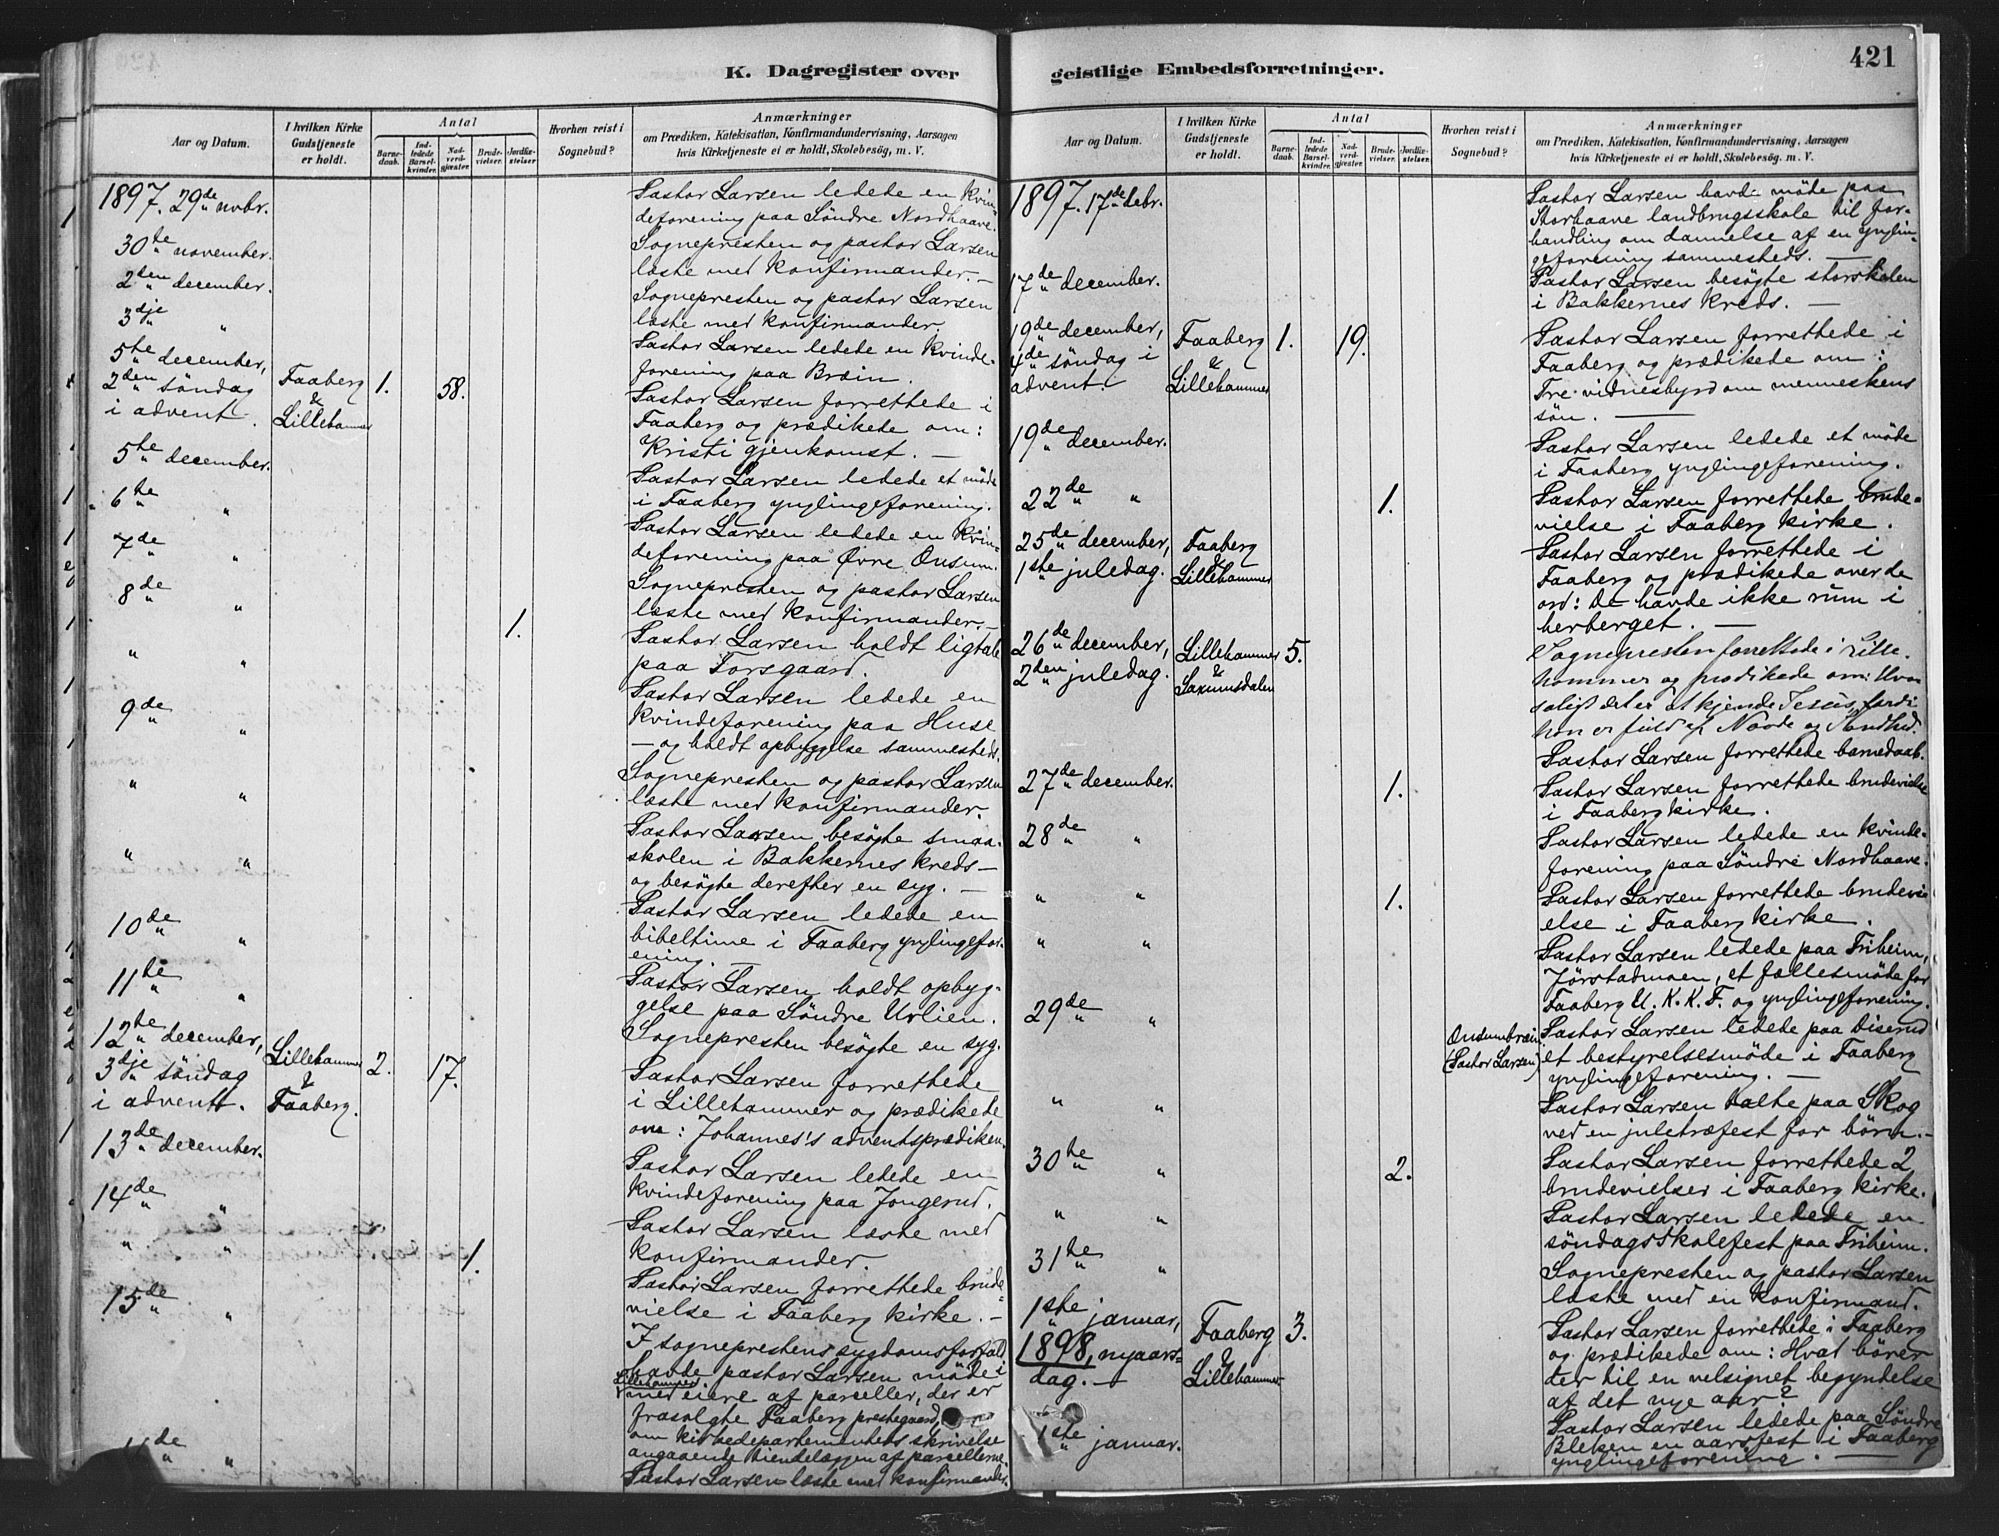 K. Dagregister over
Aar og Datum.
I hvilken Kirke Gudstjeneste er holdt.
Antal
Barnedaab.
Indledede Barselkvinder.
Nadverdgjester
Brudevielser.
Jordfæstelser
Hvorhen reist i Sognebud?
Anmærkninger
om Prædiken, Katekisation, Konfirmandundervisning, Aarsagen
hvis Kirketjeneste ei er holdt, Skolebesøg, m. V.
1897. 29de novbr.
Pastor Larsen ledede en kvin-
deforening paa Söndre Nordhaave.
30te november.
Sognepresten og pastor Larsen
læste med konfirmander. —
2den december.
Sognepresten og pastor Larsen
læste med konfirmander.
3dje "
Pastor Larsen ledede en kvinde-
forening paa Bræin.
5te december,
2den söndag
i advent.
Faaberg
&
Lillehammer
1.
58.
Pastor Larsen forrettede i
Faaberg og prædikede om:
Kristi gjenkomst. —
5te december.
Pastor Larsen ledede et möde
i Faaberg ynglingeforening.
6te "
Pastor Larsen ledede en kvin-
deforening paa Øvre Onsum.
7de "
Sognepresten og pastor Larsen
læste med konfirmander. —
8de "
1.
Pastor Larsen holdt ligtale
paa Forsgaard.
" "
Pastor Larsen ledede en
kvindeforening paa Huse
— og holdt opbyggelse sammesteds.
9de "
Sognepresten og pastor Larsen
læste med konfirmander.
" "
Pastor Larsen besögte smaa-
skolen i Bakkernes kreds —
og besögte derefter en syg. —
" "
Pastor Larsen ledede en
bibeltime i Faaberg ynglingefor-
ening.
10de "
Pastor Larsen holdt opbyg-
gelse paa Söndre Urlien.
11te "
Sognepresten besögte en syg.
12te december,
3dje söndag
i advent.
Lillehammer
&
Faaberg.
2.
17.
Pastor Larsen forrettede
i Lillehammer og prædikede
over: Johannes's adventsprædiken.
13de december.
Pastor Larsen ledede en
kvindeforening paa Jongerud.
14de "
Pastor Larsen læste med
konfirmander.
" "
1.
Pastor Larsen forrettede brude-
vielse i Faaberg kirke. —
15de "
I sogneprestens sygdomsforfald
havde pastor Larsen möde i
Lillehammer
med eiere af parceller, der er
frasolgte Faaberg prestegaard,
om kirkedepartementets skrivelse
angaaende af parcellerne
Pastor Larsen læste med konfirmander.
421
geistlige Embedsforretninger.
Aar og Datum.
I hvilken Kirke Gudstjeneste er holdt.
Antal
Barnedaab.
Indledede Barselkvinder.
Nadverdgjester
Brudevielser.
Jordfæstelser.
Hvorhen reist i Sognebud?
Anmærkninger
om Prædiken, Katekisation, Konfirmandundervisning, Aarsagen
hvis Kirketjeneste ei er holdt, Skolebesøg, m. V.
1897. 17de debr.
Pastor Larsen havde möde paa
Storhaave landbrugsskole til for-
handling om dannelse af en ynglin-
geforening sammesteds. —
17de december.
Pastor Larsen besögte storskolen
i Bakkernes kreds. —
19de december,
4de söndag i
advent.
Faaberg
&
Lillehammer
1.
19.
Pastor Larsen forrettede i
Faaberg og prædikede om:
Tre vidnesbyrd om menneskens
sön. —
19de december.
Pastor Larsen ledede et möde
i Faaberg ynglingeforening.
22de "
1.
Pastor Larsen forrettede brude-
vielse i Faaberg kirke.
25de december,
1ste juledag.
Faaberg
&
Lillehammer
Pastor Larsen forrettede i
Faaberg og prædikede over de
ord: De havde ikke rüm i
herberget. —
26de december,
2den juledag.
Lillehammer
&
Saxumsdalen
5.
Sognepresten forrettede i Lille-
hammer og prædikede om: Hvor
saligt det er at kjende Jesus, fordi
han er fuld af Naade og Sandhed.
Pastor Larsen forrettede barnedaab.
27de december.
1.
Pastor Larsen forrettede brudevielse
i Faaberg kirke.
28de "
Pastor Larsen ledede en kvinde-
forening paa Söndre Nordhaave.
" "
1.
Pastor Larsen forrettede brudevi-
else i Faaberg kirke.
" "
Pastor Larsen ledede paa Friheim,
Jörstadmoen, et fællesmöde for
Faaberg U. K. K. F. og ynglingeforening.
29de "
Onsumbræin
(Pastor Larsen)
Pastor Larsen ledede paa Diserud
et bestyrelsesmöde i Faaberg
ynglingeforening. —
" "
Pastor Larsen talte paa Skog
ved en juletræfest for börn. —
30te "
2.
Pastor Larsen forrettede 2
brudevielser i Faaberg kirke.
" "
Pastor Larsen ledede en
söndagsskolefest paa Friheim.
31te "
Sognepresten og pastor Larsen
læste med en konfirmand.
1ste januar,
1898, nyaars-
dag. —
Faaberg
&
Lillehammer
3.
Pastor Larsen forrettede i Faaberg
og prædikede om: Hvad hörer
der til en velsignet begyndelse
af det nye aar?
1ste januar.
Pastor Larsen ledede paa Söndre
Bleken en aarsfest i Faaberg
ynglingeforening. —